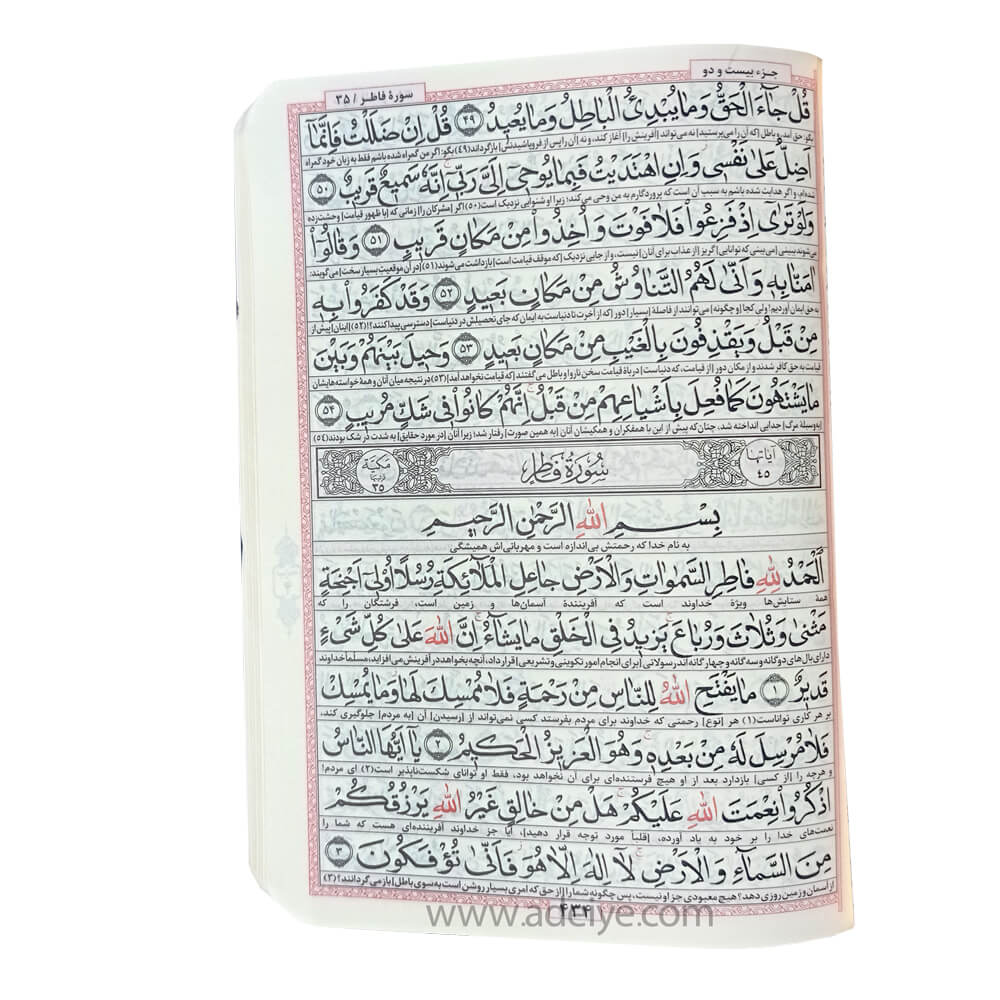 جزء بیست و دو
سورهٔ فاطر / ۳۵
قُلْ جَاۤءَ الْحَقُّ وَمَا يُبْدِئُ الْبَاطِلُ وَمَا يُعِيدُ ﴿۴۹﴾ قُلْ اِنْ ضَلَلْتُ فَاِنَّمَاۤ
بگو: حق آمد و باطل [که آن را می‌پرستید] نه می‌تواند [آفرینش را] آغاز کند، و نه [آن را پس از فروپاشیدنش] بازگرداند (۴۹) بگو: اگر من گمراه شده باشم فقط به زیان خود گمراه
اَضِلُّ عَلىٰ نَفْسِى وَاِنِ اهْتَدَيْتُ فَبِمَا يُوحِىۤ اِلَىَّ رَبِّى اِنَّهُ سَمِيعٌ قَرِيبٌ ﴿۵۰﴾
شده‌ام، و اگر هدایت شده باشم به سبب آن است که پروردگارم به من وحی می‌کند؛ زیرا او شنوایی نزدیک است (۵۰) اگر [مشرکان را] زمانی که [با ظهور قیامت] وحشت‌زده
وَلَوْ تَرىٰۤ اِذْ فَزِعُوا فَلَا فَوْتَ وَ اُخِذُوا مِنْ مَكَانٍ قَرِيبٍ ﴿۵۱﴾ وَ قَالُوۤا
می‌شوند ببینی [می‌بینی که توانایی] گریز [از عذاب برای آنان] نیست، و از جایی نزدیک [که موقف قیامت است] بازداشت می‌شوند (۵۱) [در آن موقعیت بسیار سخت] می‌گویند:
اٰمَنَّا بِهِ وَ اَنّٰى لَهُمُ التَّنَاوُشُ مِنْ مَكَانٍ بَعِيدٍ ﴿۵۲﴾ وَ قَدْ كَفَرُوا بِهِ
به حق ایمان آوردیم! ولی کجا [و چگونه] می‌توانند از فاصلهٔ [بسیار] دور [که از آخرت تا دنیاست به ایمان که جای تحصیلش در دنیاست] دسترسی پیدا کنند؟! (۵۲) [اینان] پیش از
مِنْ قَبْلُ وَ يَقْذِفُونَ بِالْغَيْبِ مِنْ مَكَانٍ بَعِيدٍ ﴿۵۳﴾ وَ حِيلَ بَيْنَهُمْ وَبَيْنَ
قیامت به حق کافر شدند و از مکان دور [از قیامت، که دنیاست] دربارهٔ قیامت سخن ناروا و باطل می‌گفتند [که قیامت نخواهد آمد] (۵۳) در نتیجه میان آنان و همهٔ خواسته‌هایشان
مَا يَشْتَهُونَ كَمَا فُعِلَ بِاَشْيَاعِهِمْ مِنْ قَبْلُ اِنَّهُمْ كَانُوا فِى شَكٍّ مُرِيبٍ ﴿۵۴﴾
[به وسیلهٔ مرگ] جدایی انداخته شد، چنان‌که پیش از این با همفکران و همکیشان آنان [به همین صورت] رفتار شد؛ زیرا آنان [در مورد حقایق] به شدت در شک بودند (۵۴)
آیاتها ۴۵
سُورَةُ فَاطِرٍ
مکیّة ۳۵
بِسْمِ اللهِ الرَّحْمٰنِ الرَّحِيمِ
به نام خدا که رحمتش بی‌اندازه است و مهربانی‌اش همیشگی
اَلْحَمْدُ لِلّٰهِ فَاطِرِ السَّمٰوَاتِ وَالْاَرْضِ جَاعِلِ الْمَلٰۤائِكَةِ رُسُلًا اُولِىۤ اَجْنِحَةٍ
همهٔ ستایش‌ها ویژهٔ خداوند است که آفرینندهٔ آسمان‌ها و زمین است، فرشتگان را که
مَثْنىٰ وَ ثُلَاثَ وَ رُبَاعَ يَزِيدُ فِى الْخَلْقِ مَا يَشَاۤءُ اِنَّ اللهَ عَلىٰ كُلِّ شَىْءٍ
دارای بال‌های دوگانه و سه گانه و چهار گانه‌اند رسولانی [برای انجام امور تکوینی و تشریعی] قرار داد، آنچه بخواهد در آفرینش می‌افزاید، مسلماً خداوند
قَدِيرٌ ﴿۱﴾ مَا يَفْتَحِ اللهُ لِلنَّاسِ مِنْ رَحْمَةٍ فَلَا مُمْسِكَ لَهَا وَ مَا يُمْسِكْ
بر هر کاری تواناست (۱) هر [نوع] رحمتی که خداوند برای مردم بفرستد کسی نمی‌تواند از [رسیدن] آن [به مردم] جلوگیری کند،
فَلَا مُرْسِلَ لَهُ مِنْ بَعْدِهِ وَ هُوَ الْعَزِيزُ الْحَكِيمُ ﴿۲﴾ يَاۤ اَيُّهَا النَّاسُ
و هرچه را [از کسی] بازدارد بعد از او هیچ فرستنده‌ای برای آن نخواهد بود، فقط او توانای شکست‌ناپذیر است (۲) ای مردم!
اذْكُرُوا نِعْمَتَ اللهِ عَلَيْكُمْ هَلْ مِنْ خَالِقٍ غَيْرُ اللهِ يَرْزُقُكُمْ
نعمت‌های خدا را بر خود به یاد آورده، [قلباً مورد توجه قرار دهید]، آیا جز خداوند آفریننده‌ای هست که شما را
مِنَ السَّمَاۤءِ وَ الْاَرْضِ لَاۤ اِلٰهَ اِلَّا هُوَ فَاَنّٰى تُؤْفَكُونَ ﴿۳﴾
از آسمان و زمین روزی دهد؟ هیچ معبودی جز او نیست، پس چگونه شما را [از حق که امری بسیار روشن است به سوی باطل] بازمی‌گردانند؟ (۳)
۴۳۴
www.adeiye.com